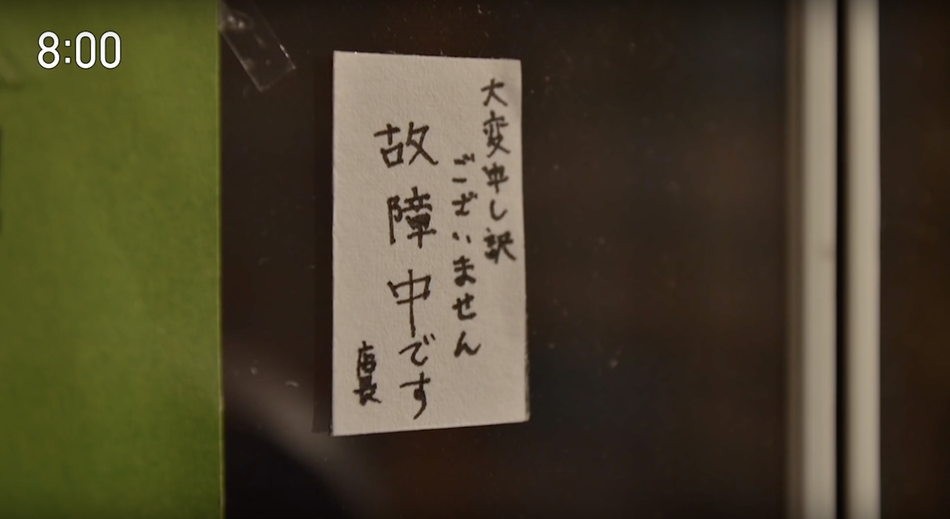 8:00
大変申し訳
ございません
故障中です
店長